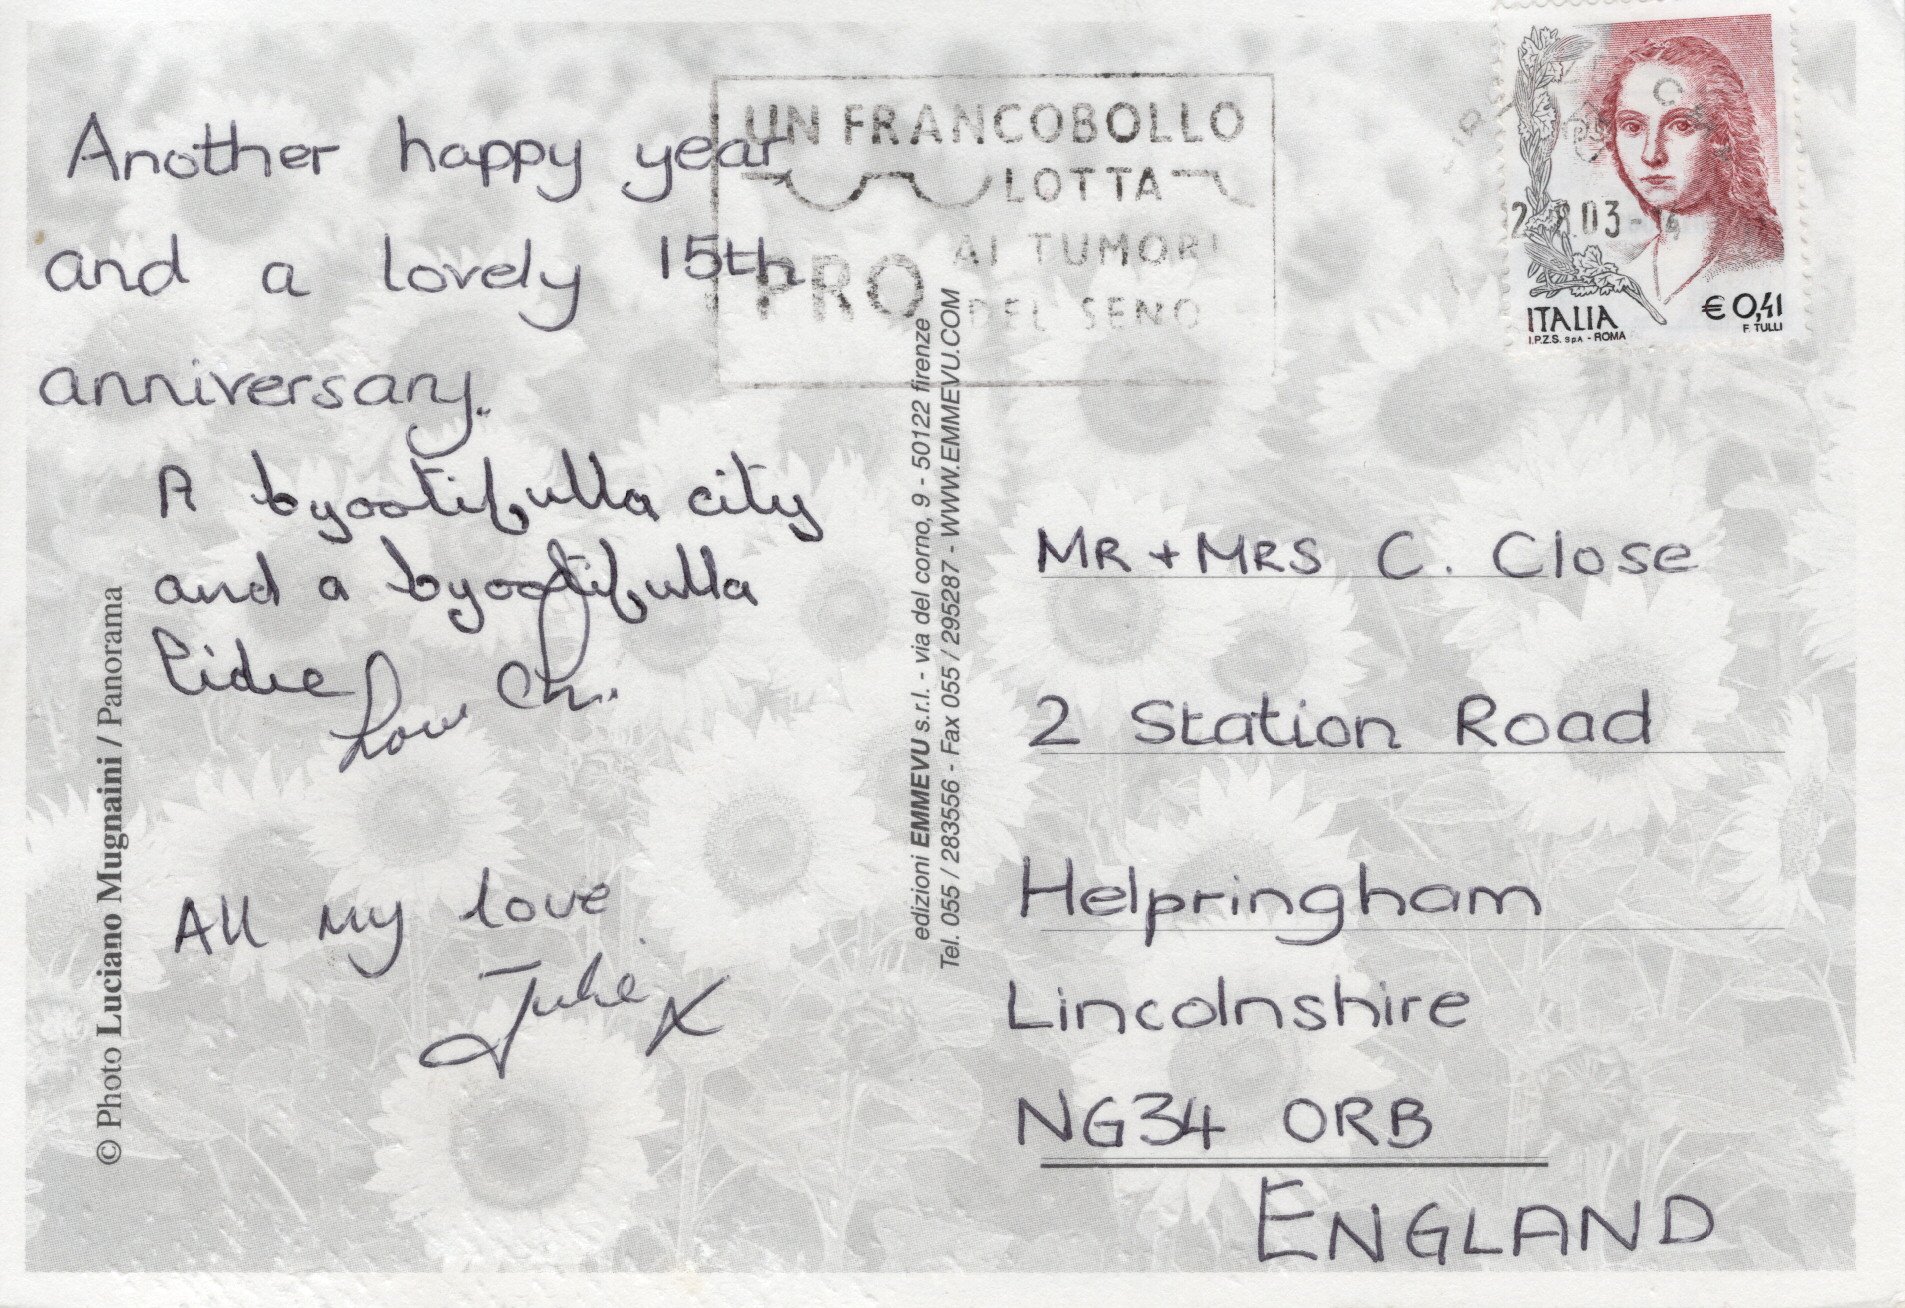 Another happy year
and a lovely 15th
anniversary.
A byootifulla city
and a byootifulla
Love Ch.
All my love
Julie X
© Photo Luciano Mugnaini / Panorama
UN FRANCOBOLLO
LOTTA
AI TUMORI
PRO DEL SENO
edizioni EMMEVU s.r.l. - via del corno, 9 - 50122 firenze
Tel. 055 / 283556 - Fax 055 / 295287 - WWW.EMMEVU.COM
.03-14
ITALIA € 0,41
I.P.Z.S. S.p.A. - ROMA F. TULLI
MR + MRS C. Close
2 Station Road
Helpringham
Lincolnshire
NG34 0RB
ENGLAND